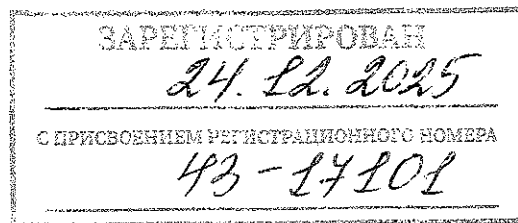 ЗАРЕГИСТРИРОВАН
24.12.2025
С ПРИСВОЕНИЕМ РЕГИСТРАЦИОННОГО НОМЕРА
43-17101